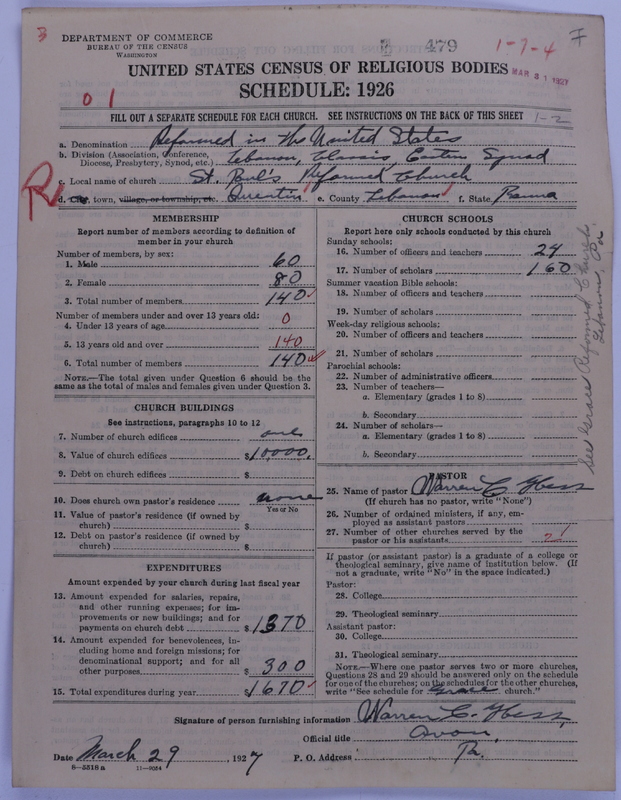 3
DEPARTMENT OF COMMERCE
BUREAU OF THE CENSUS
WASHINGTON
479
1-7-4
7
UNITED STATES CENSUS OF RELIGIOUS BODIES
MAR 31 1927
SCHEDULE: 1926
0 1
FILL OUT A SEPARATE SCHEDULE FOR EACH CHURCH. SEE INSTRUCTIONS ON THE BACK OF THIS SHEET
1-2
a. Denomination Reformed in the United States
b. Division (Association, Conference, Diocese, Presbytery, Synod, etc.) Lebanon, Classis, Eastern Synod
c. Local name of church St. Paul's Reformed Church
R
d. City, town, village, or township, etc. Quentin e. County Lebanon f. State Penna
MEMBERSHIP
Report number of members according to definition of member in your church
Number of members, by sex:
1. Male 60
2. Female 80
3. Total number of members 140
Number of members under and over 13 years old:
4. Under 13 years of age 0
5. 13 years old and over 140
6. Total number of members 140
NOTE.—The total given under Question 6 should be the same as the total of males and females given under Question 3.
CHURCH BUILDINGS
See instructions, paragraphs 10 to 12
7. Number of church edifices one
8. Value of church edifices $10,000,
9. Debt on church edifices $
10. Does church own pastor's residence none
Yes or No
11. Value of pastor's residence (if owned by church) $
12. Debt on pastor's residence (if owned by church) $
EXPENDITURES
Amount expended by your church during last fiscal year
13. Amount expended for salaries, repairs, and other running expenses; for improvements or new buildings; and for payments on church debt $1370
14. Amount expended for benevolences, including home and foreign missions; for denominational support; and for all other purposes $300
15. Total expenditures during year $1670
CHURCH SCHOOLS
Report here only schools conducted by this church
Sunday schools:
16. Number of officers and teachers 24
17. Number of scholars 160
Summer vacation Bible schools:
18. Number of officers and teachers
19. Number of scholars
Week-day religious schools:
20. Number of officers and teachers
21. Number of scholars
Parochial schools:
22. Number of administrative officers
23. Number of teachers—
a. Elementary (grades 1 to 8)
b. Secondary
24. Number of scholars—
a. Elementary (grades 1 to 8)
b. Secondary
See Grace Reformed Church, Lebanon, Pa
PASTOR
25. Name of pastor Warren C
(If church has no pastor, write "None")
26. Number of ordained ministers, if any, employed as assistant pastors
27. Number of other churches served by the pastor or his assistants 2
If pastor (or assistant pastor) is a graduate of a college or theological seminary, give name of institution below. (If not a graduate, write "No" in the space indicated.)
Pastor:
28. College
29. Theological seminary
Assistant pastor:
30. College
31. Theological seminary
NOTE.—Where one pastor serves two or more churches, Questions 28 and 29 should be answered only on the schedule for one of the churches; on the schedules for the other churches, write "See schedule for Grace church."
Signature of person furnishing information Warren C.
Official title
Avon,
Date March 29, 1927 P. O. Address Pa.
8-5318a 11-9054